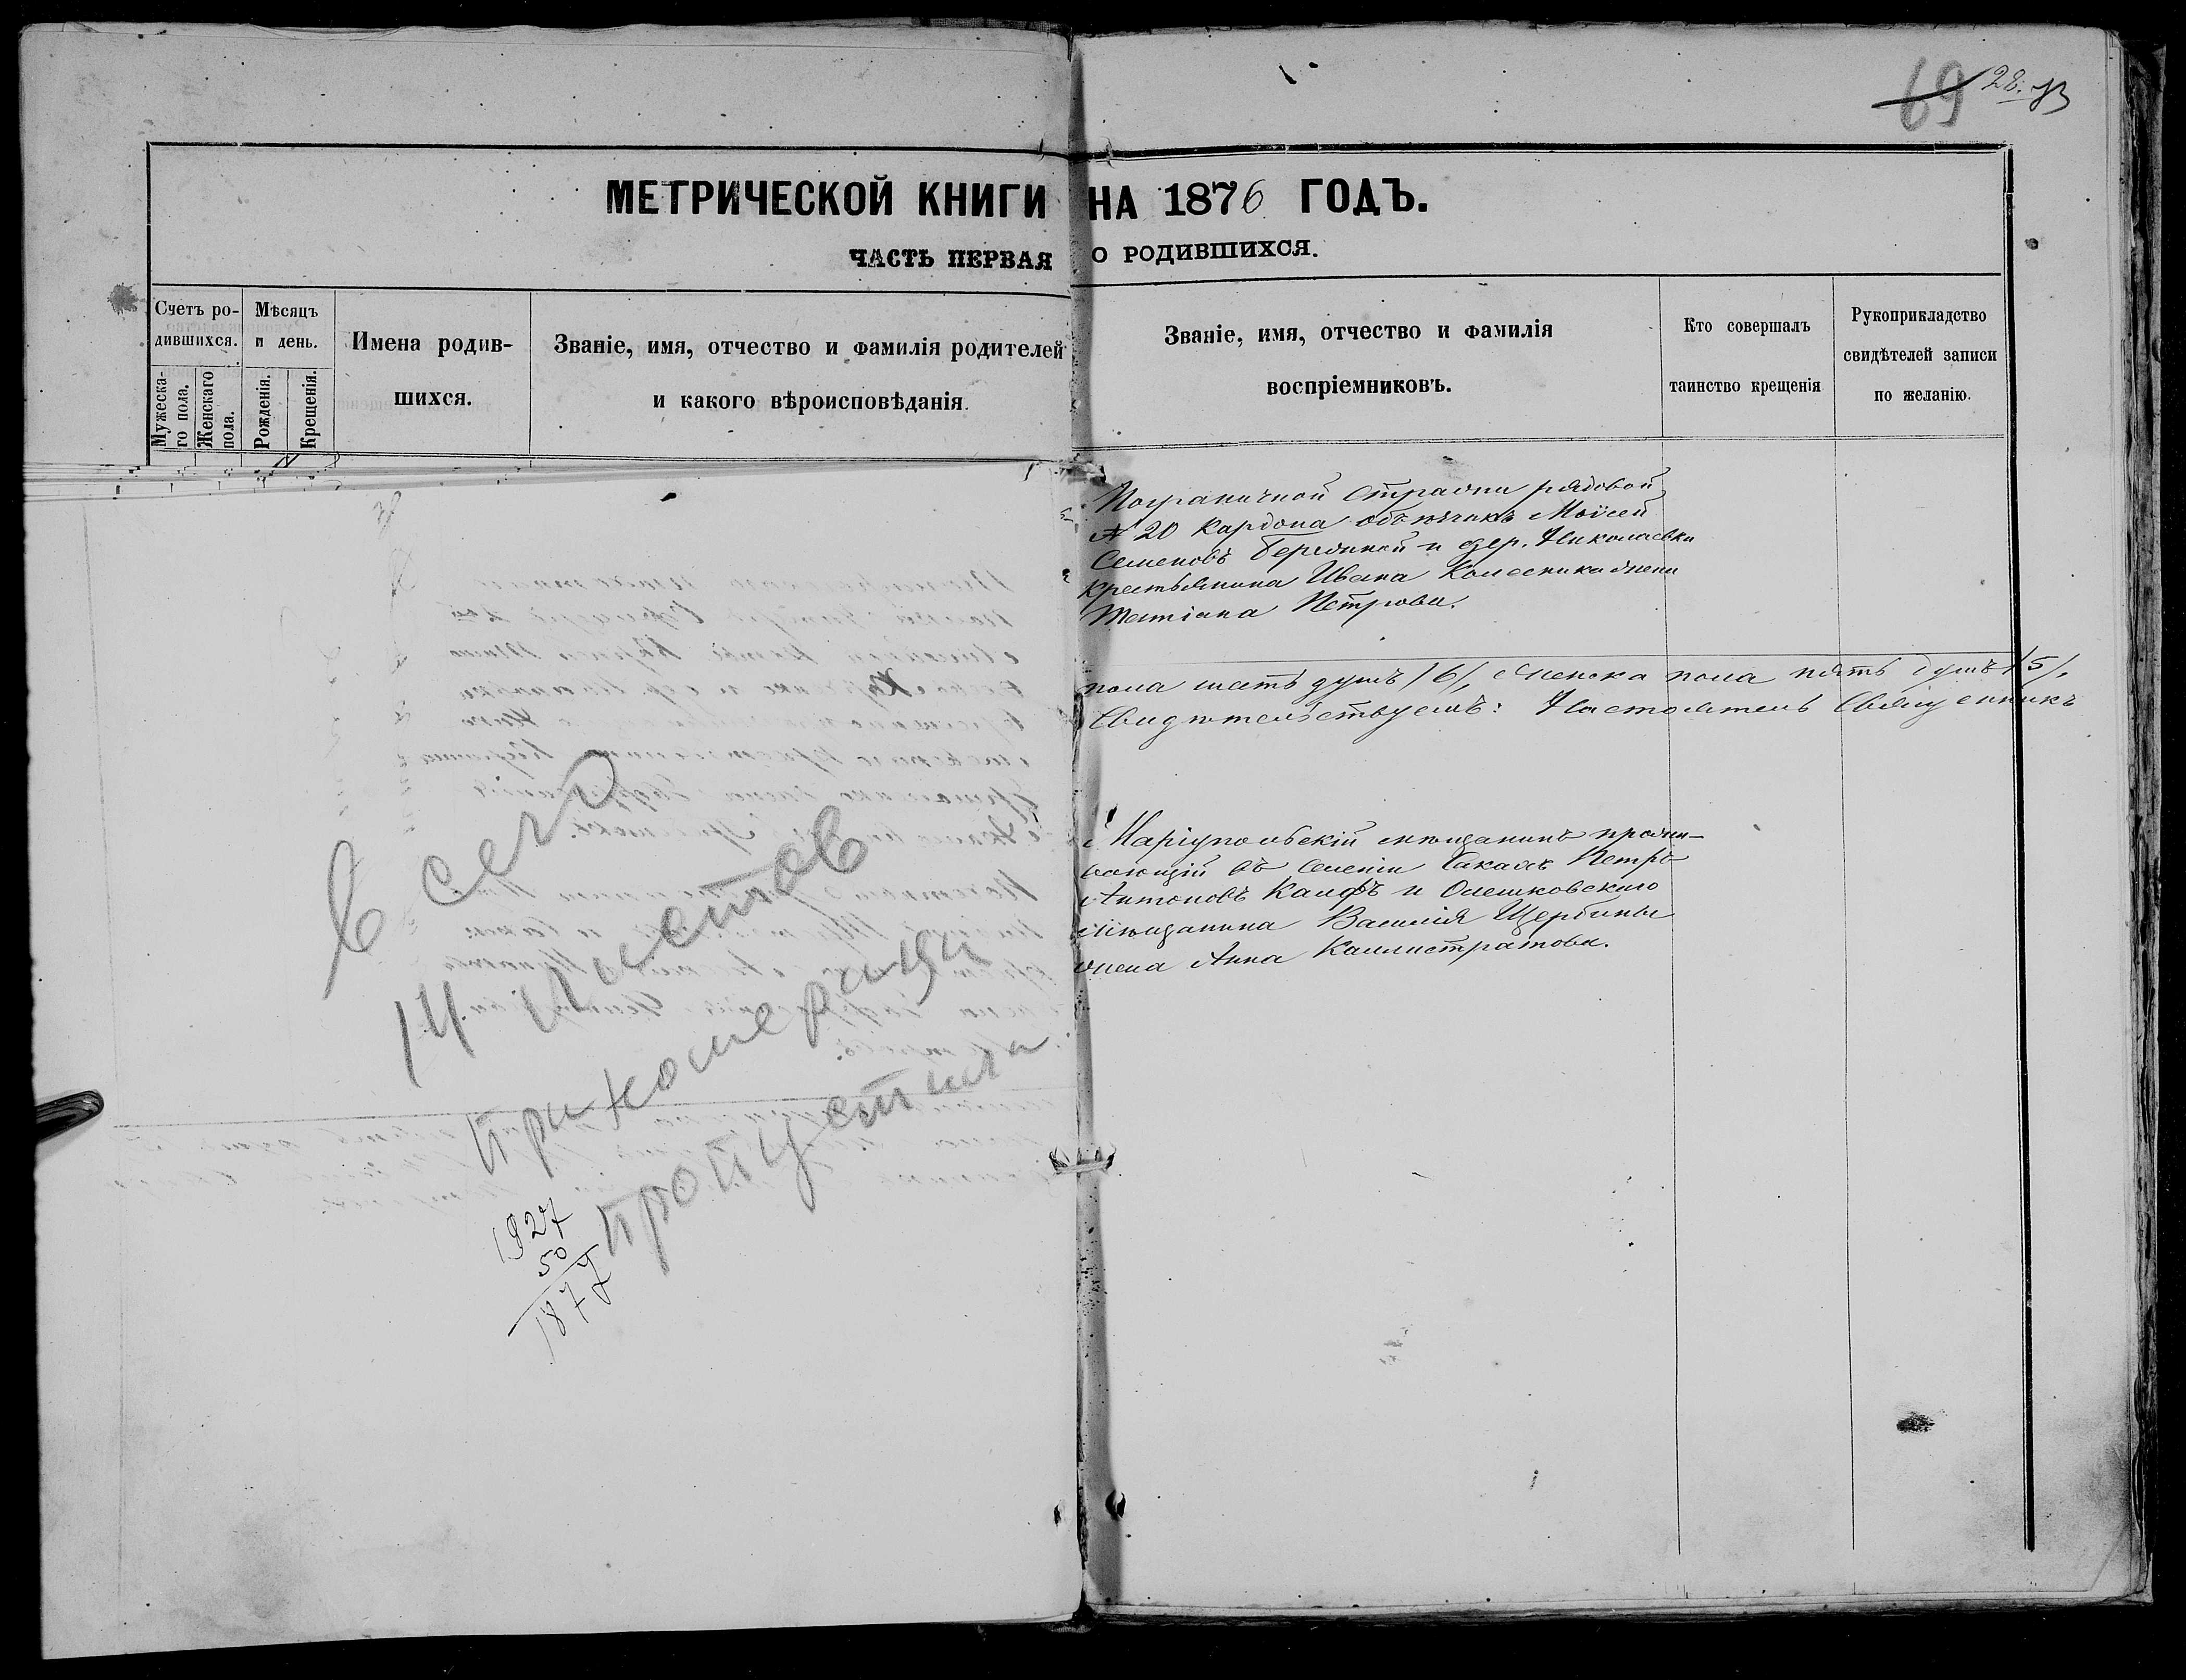 69 28.
МЕТРИЧЕСКОЙ КНИГИ НА 1876 ГОДЪ.
ЧАСТЬ ПЕРВАЯ О РОДИВШИХСЯ.
Счетъ ро-
дившихся.
Мужеска-
го пола.
Женскаго
пола.
Мѣсяцъ
и день.
Рожденія.
Крещенія.
Имена родив-
шихся.
Званіе, имя, отчество и фамилія родителей
и какого вѣроисповѣданія.
Званіе, имя, отчество и фамилія
воспріемниковъ.
Кто совершалъ
таинство крещенія
Рукоприкладство
свидѣтелей записи
по желанію.
всего
14 листов
при номерации
пропустили
1927
50
1877
Пограничной Стражи рядовой
№ 20 Кардона объѣзчикъ Моисей
Семеновъ и дер. Николаевки
крестьянина Ивана Колесника жена
Татіана Петрова.
пола шесть душъ /6/, Женска пола пять душъ /5/.
Свидѣтельствуемъ: Настоятель Священникъ
Маріупольскій мѣщанинъ прожи-
вающій въ Селеніи Петръ
Антоновъ Калфъ и Олешковскаго
мѣщанина Василія Щербины
жена Анна Калистратова.